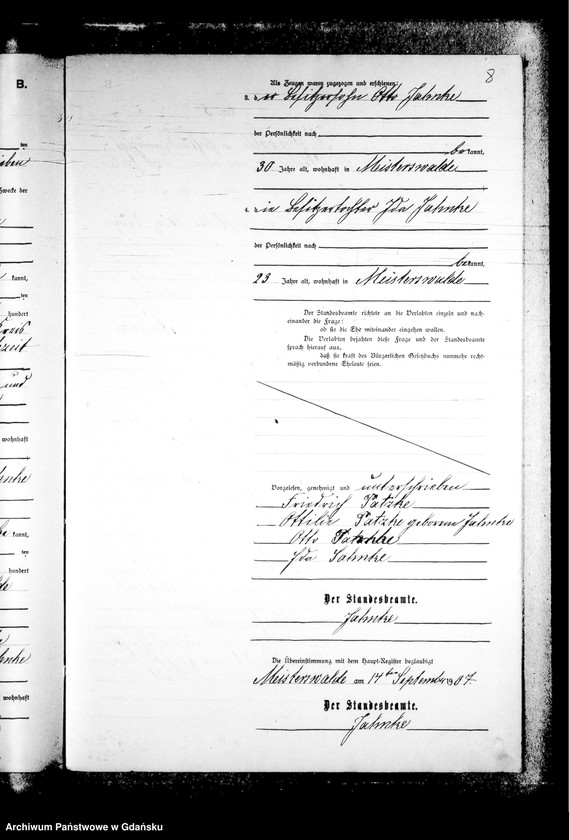 B.
8
Als Zeugen waren zugezogen und erschienen:
3. der Besitzersohn Otto Jahnke
der Persönlichkeit nach
be kannt,
30 Jahre alt, wohnhaft in Meisterswalde
4. die Besitzertochter Ida Jahnke
der Persönlichkeit nach
bekannt,
23 Jahre alt, wohnhaft in Meisterswalde
Der Standesbeamte richtete an die Verlobten einzeln und nach-
einander die Frage:
ob sie die Ehe miteinander eingehen wollen.
Die Verlobten bejahten diese Frage und der Standesbeamte
sprach hierauf aus,
daß sie kraft des Bürgerlichen Gesetzbuchs nunmehr recht-
mäßig verbundene Eheleute seien.
Vorgelesen, genehmigt und unterschrieben
Friedrich Patzke
Ottilie Patzke geborene Jahnke
Otto
Ida Jahnke
Der Standesbeamte.
Jahnke
Die Übereinstimmung mit dem Haupt-Register beglaubigt
Meisterswalde am 14ten September 1907
Der Standesbeamte.
Jahnke
ten
Zwecke der
kannt,
ten
hundert
und
wohnhaft
kannt,
ten
hundert
wohnhaft
Archiwum Państwowe w Gdańsku